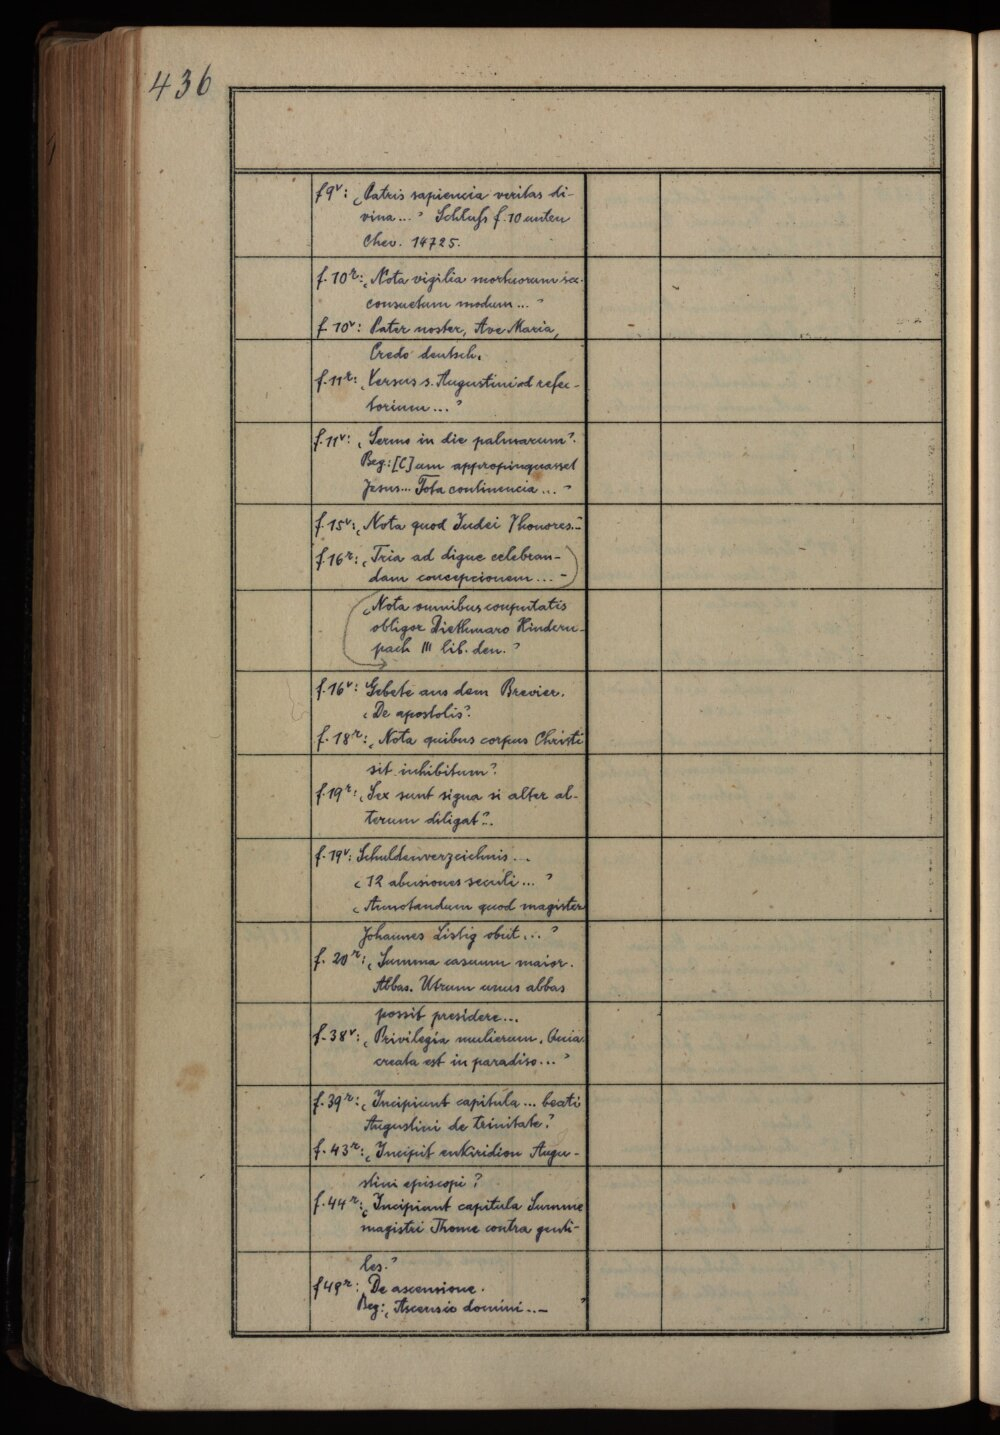 436
f 9v: „Patris sapiencia veritas di-
vina...“ Schluſs f. 10 unten
Chev. 14725.
f. 10r: „Nota vigilia mortuorum sec.
consuetum modum...“
f. 10v: Pater noster, Ave Maria,
Credo deutsch.
f. 11r: „Versus s. Augustini ad refec-
torium...“
f. 11v: „Sermo in die palmarum“.
Beg: [C]um appropinquasset
Jesus... Tota continencia...“
f. 15v: „Nota quod Iudei 7 honores...“
f. 16r: „Tria ad digne celebran-
dam concepcionem...“
„Nota omnibus conputatis
obligor Diethmaro Hindern-
pach III lib. den.“
f. 16v: Gebete aus dem Brevier.
„De apostolis“.
f. 18r: „Nota quibus corpus Christi
sit inhibitum“.
f. 19r: „Sex sunt signa si alter al-
terum diligat“.
f. 19v: Schuldenverzeichnis...
„12 abusiones seculi...“
„Annotandum quod magister
Johannes Listig obiit...“
f. 20r: „Summa casuum maior.
Abbas. Utrum unus abbas
possit presidere...
f. 38v: „Privilegia mulierum. Quia
creata est in paradiso...“
f. 39r: „Incipiunt capitula... beati
Augustini de trinitate“.
f. 43r: „Incipit enkiridion Augu-
stini episcopi“.
f. 44r: „Incipiunt capitula Summe
magistri Thome contra genti-
les.“
f 49r: De ascensione.
Beg: „Ascensio domini...“